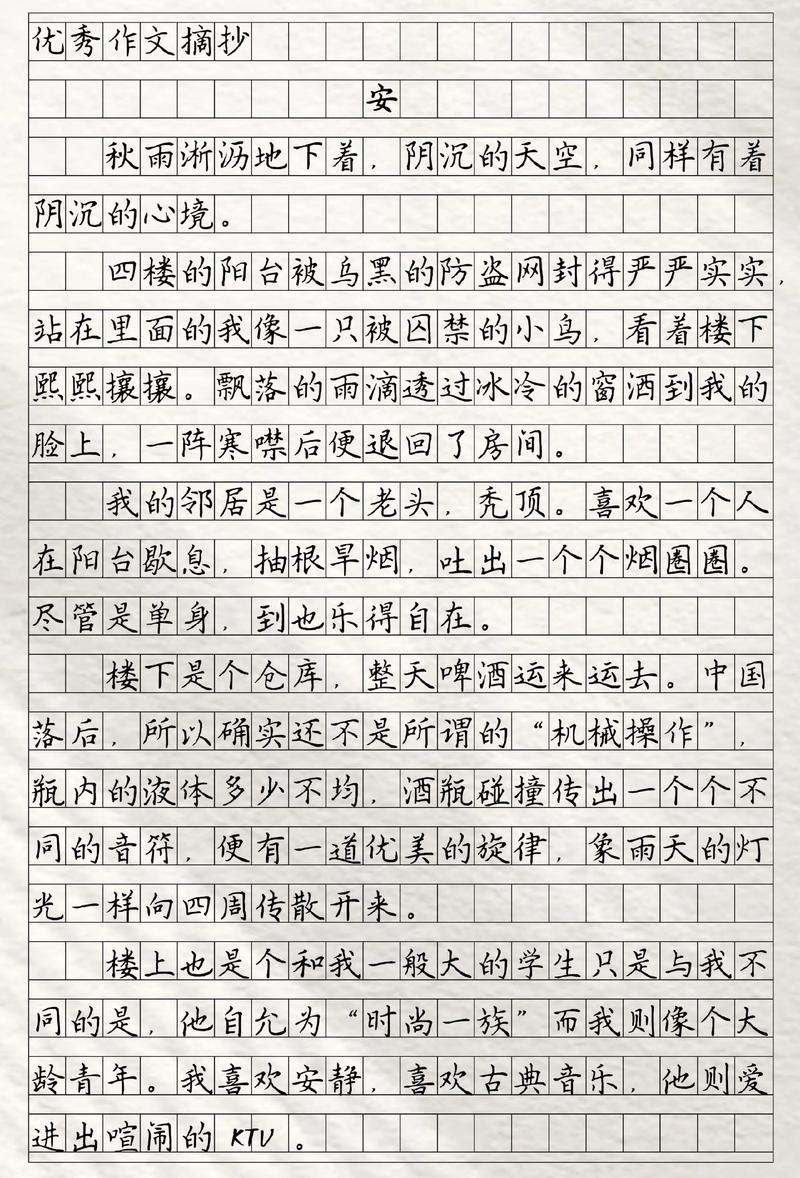 优秀作文摘抄
安
秋雨淅沥地下着，阴沉的天空，同样有着
阴沉的心境。
四楼的阳台被乌黑的防盗网封得严严实实，
站在里面的我像一只被囚禁的小鸟，看着楼下
熙熙攘攘。飘落的雨滴透过冰冷的窗洒到我的
脸上，一阵寒噤后便退回了房间。
我的邻居是一个老头，秃顶。喜欢一个人
在阳台歇息，抽根旱烟，吐出一个个烟圈圈。
尽管是单身，到也乐得自在。
楼下是个仓库，整天啤酒运来运去。中国
落后，所以确实还不是所谓的“机械操作”，
瓶内的液体多少不均，酒瓶碰撞传出一个个不
同的音符，便有一道优美的旋律，象雨天的灯
光一样向四周传散开来。
楼上也是个和我一般大的学生只是与我不
同的是，他自允为“时尚一族”而我则像个大
龄青年。我喜欢安静，喜欢古典音乐，他则爱
进出喧闹的 KTV 。